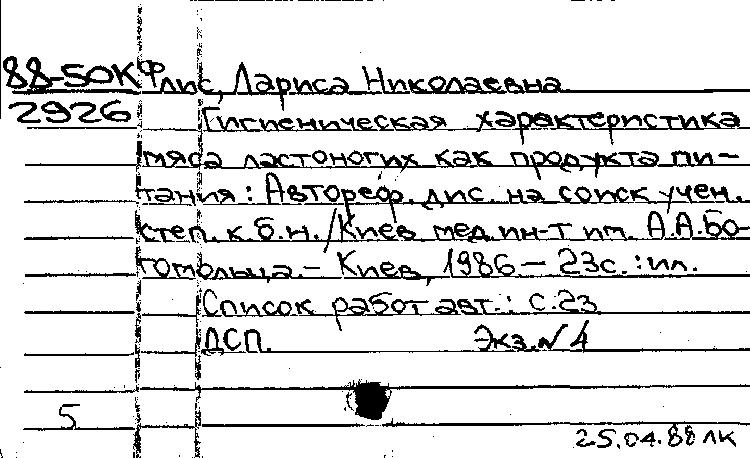 88-50К Флис, Лариса Николаевна
2926 Гигиеническая характеристика
мяса ластоногих как продукта пи-
тания: Автореф. дис. на соиск учен.
степ. к.б.н. /Киев мед ин-т им. А.А.Бо-
гомольца. - Киев, 1986 - 23с. : ил.
Список работ авт.: с.23
ДСП. Экз. № 4
5
25.04.88 лк